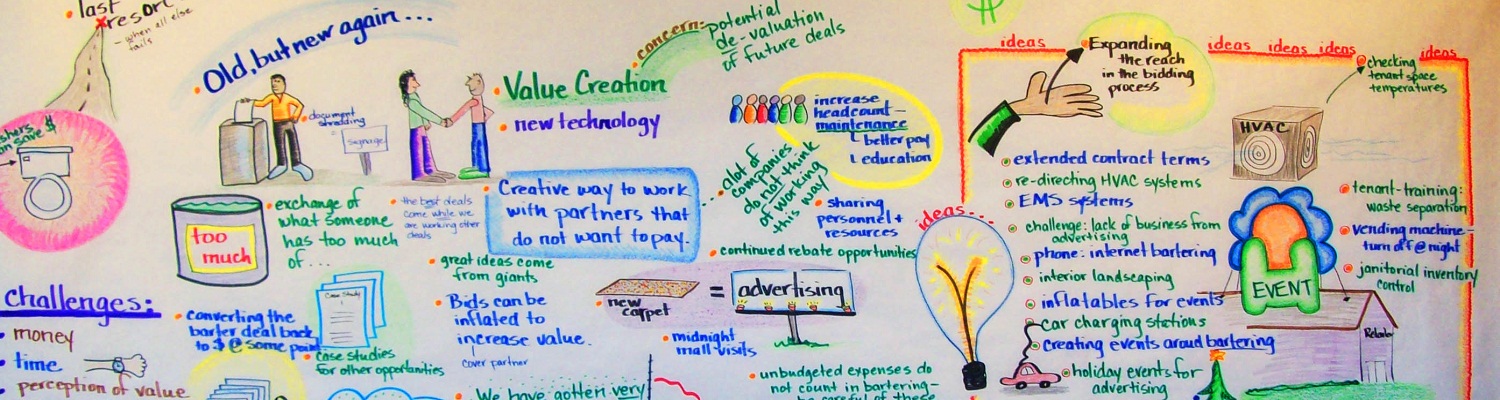 last
resort
- when all else
fails
$
Old, but new again...
document
shredding
=
signage
concern:
potential
de-valuation
of future deals
Value Creation
• new technology
increase
headcount -
maintenance
better pay
education
• a lot of
companies
do not think
of working
this way
• sharing
personnel +
resources
• exchange of
what someone
has too much
of...
too
much
• the best deals
come while we
are working other
deals
• Creative way to work
with partners that
do not want to pay.
...
Challenges:
• money
• time
• perception of value
• converting the
barter deal back
to $ @ some point
Case Study
• case studies
for other opportunities
• great ideas come
from giants
• Bids can be
inflated to
increase value.
cover partner
• We have gotten very
• continued rebate opportunities
• new
carpet
=
advertising
• midnight
mall visits
• unbudgeted expenses do
not count in bartering -
be careful of these
ideas...
ideas
ideas ideas ideas
ideas
• Expanding
the reach
in the bidding
process
• extended contract terms
• re-directing HVAC systems
• EMS systems
• challenge: lack of business from
advertising
• phone: internet bartering
• interior landscaping
• inflatables for events
• car charging stations
• creating events aroud bartering
• holiday events for
advertising
• checking
tenant space
temperatures
HVAC
• tenant-training:
waste separation
• vending machine -
turn off @ night
• janitorial inventory
control
EVENT